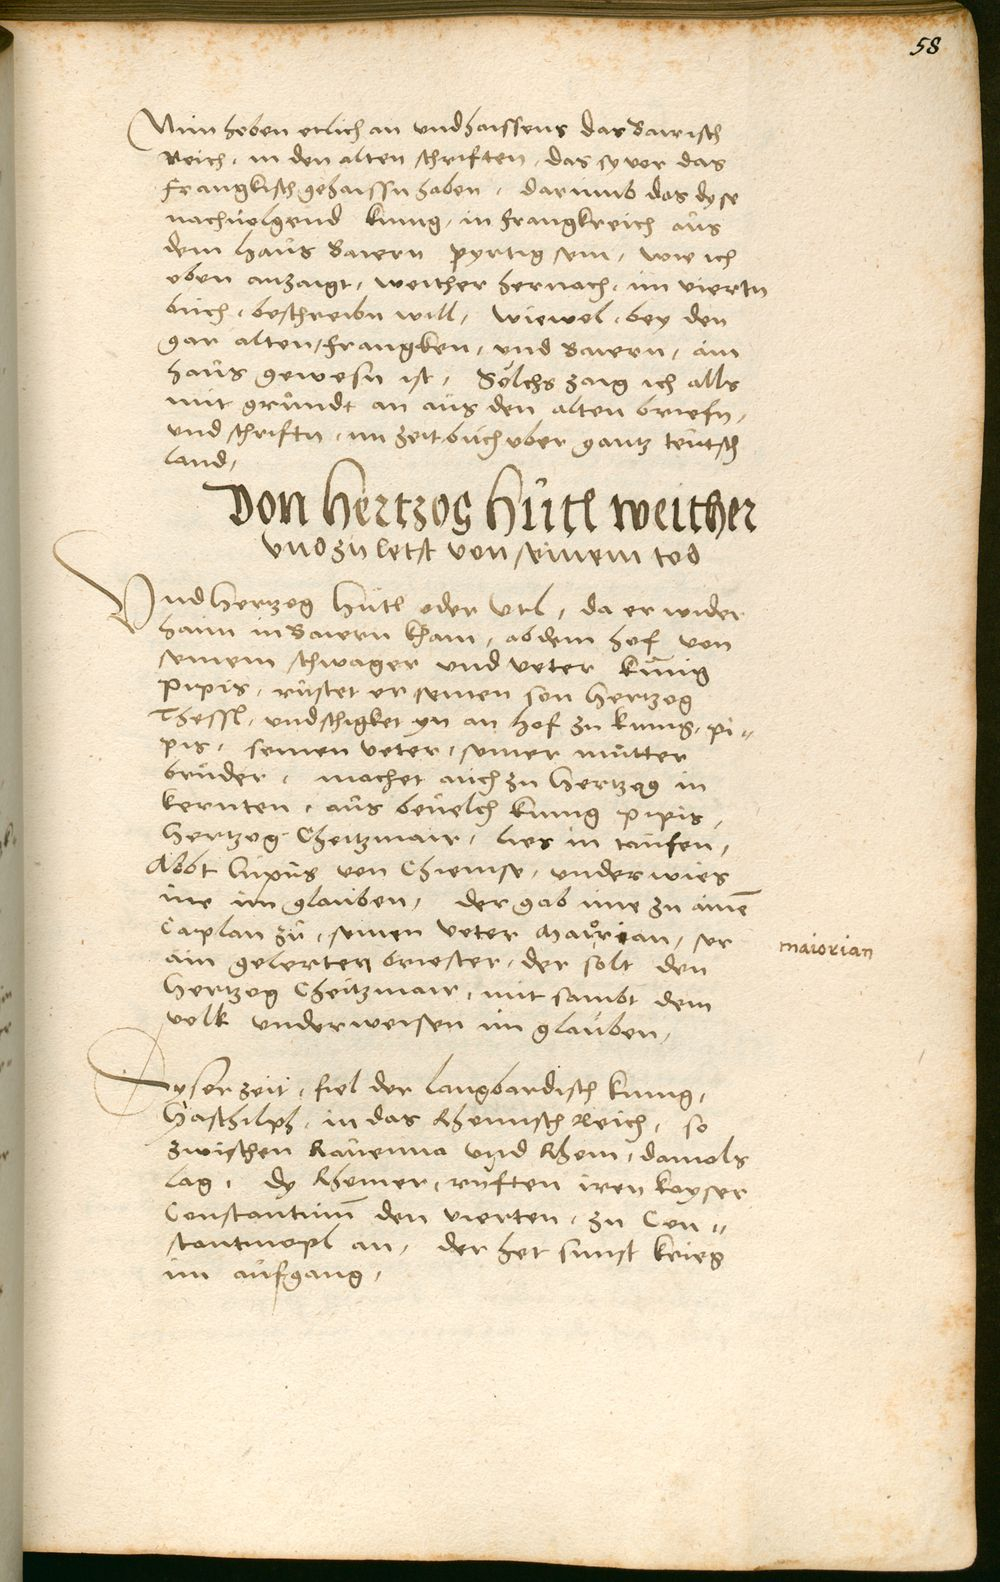 58
Nun heben etlich an und haissens das Bairisch
Reich, in den alten schriften, das sy vor das
Frangkisch gehaissn haben, darumb das dyse
nachvolgend kunig, in Frangkreich aus
dem haus Baiern pyrtig sein, wie ich
oben anzaigt, weither hernach, im viertn
buch, beschreibn will, wiewol, bey den
gar alten, Frangken, und Baiern, ain
haus gewesn ist, Sölchs zaig ich alls
mit grundt an aus den alten briefn,
und schriftn, im zeitbuch uber gantz teutsch
land,
Von Hertzog Hůtl weither
und zu letst von seinem tod
Und Hertzog Hůtl oder Utl, da er wider
haim in Baiern kham, ab dem hof von
seinem schwager und veter künig
Pipis, rüstet er seinen son Hertzog
Thessl, und schigket yn an hof zu kunig, pi„
pis, seinen veter, seiner mutter
bruder, machet auch zu Hertzog in
kernten, aus bevelch kunig pipis,
Hertzog Cheitzmair, lies in taufen,
Abbt Lupus von Chiemse, underwies
ine im glauben, der gab ime zu ainē
Caplan zu, seinen veter Maiorian, ser
ain gelerten briester, der solt den
maiorian
Hertzog Cheitzmair, mit sambt dem
volk underweisen im glauben,
Dyser zeit, fiel der langbardisch kunig,
Hasthilph, in das Rhemisch Reich, so
zwischen Ravenna und Rhom, damols
lag, dy Rhomer, ruften iren kayser
Constantinū den vierten, zu Con„
stantinopl an, der het sunst krieg
im aufgang,